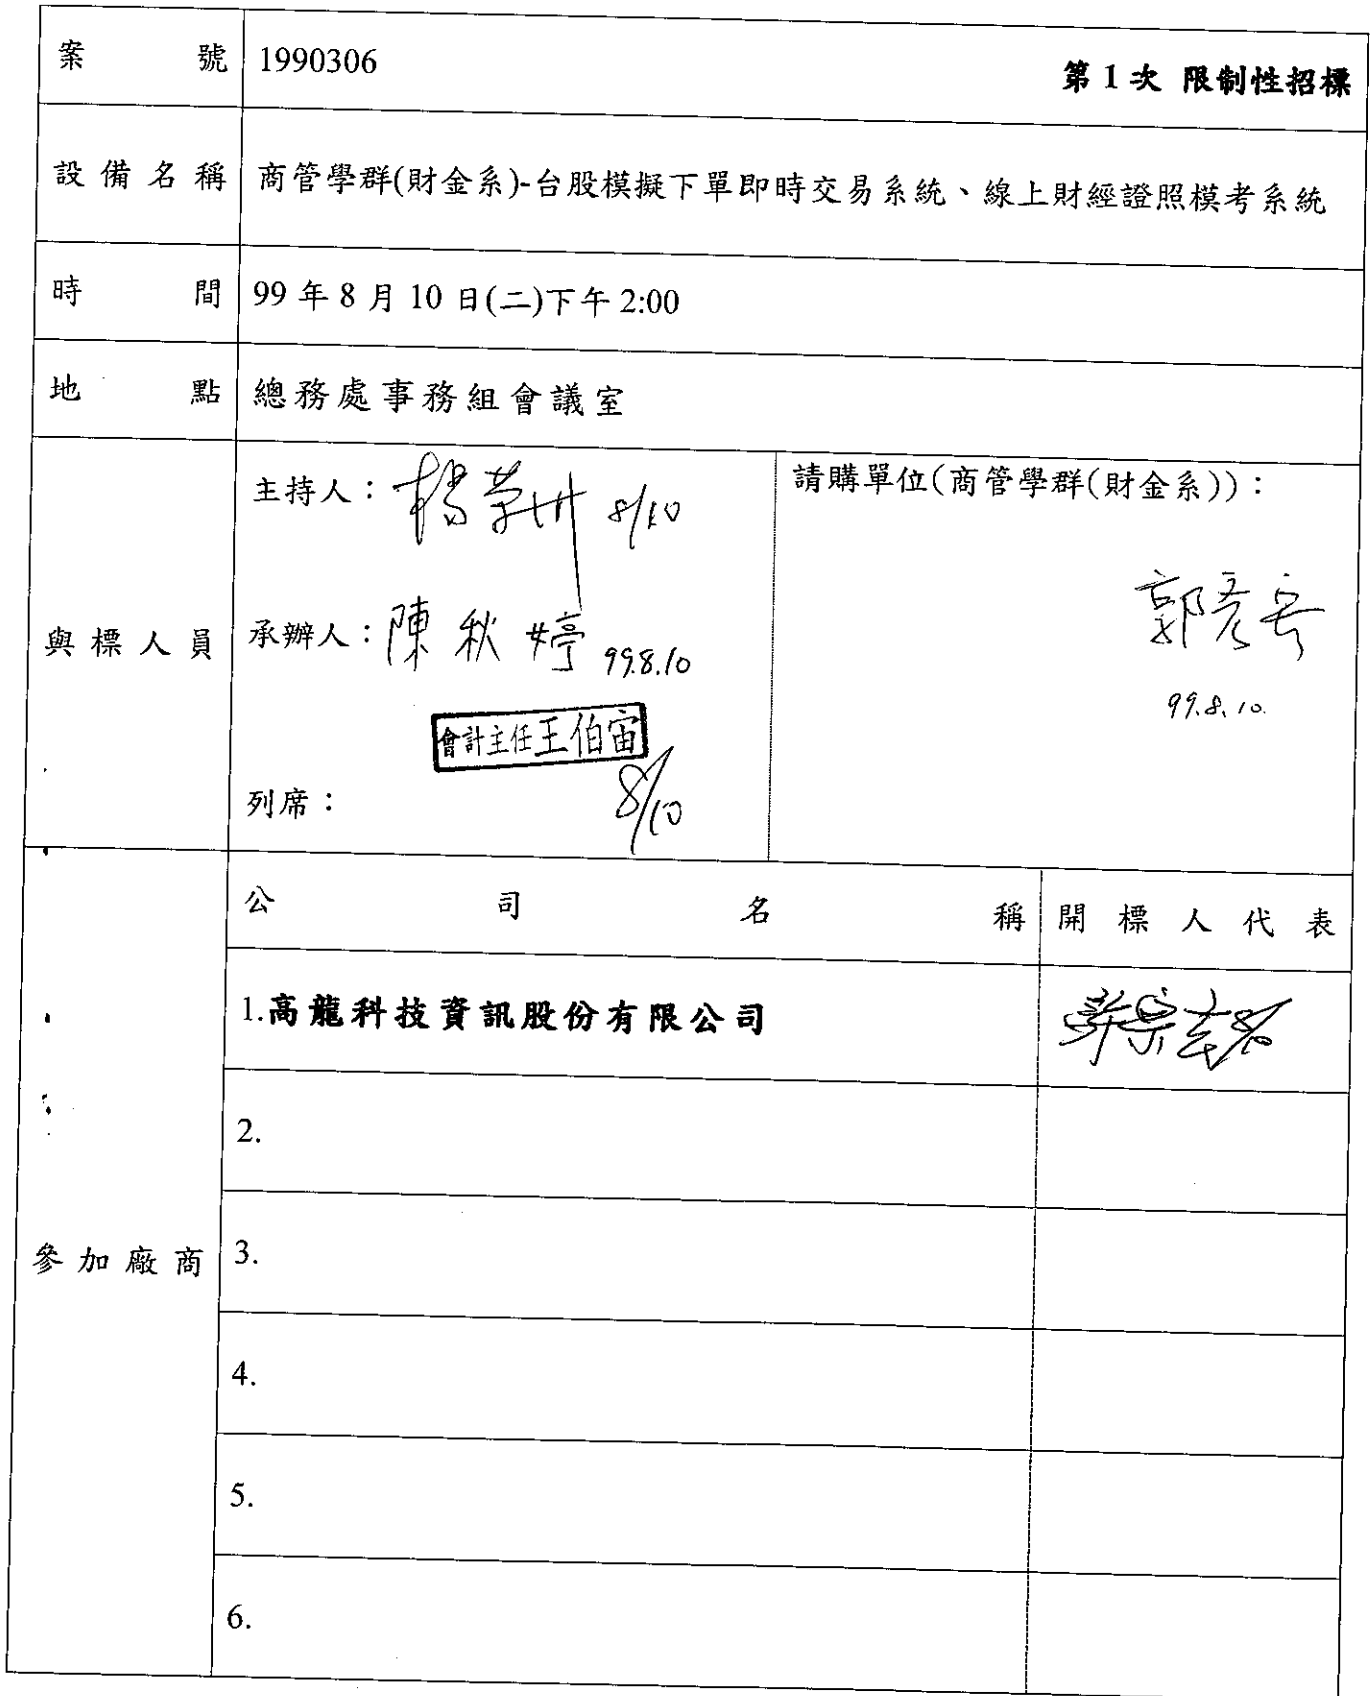 案號 1990306 第1次 限制性招標
設備名稱 商管學群(財金系)-台股模擬下單即時交易系統、線上財經證照模考系統
時間 99年8月10日(二)下午2:00
地點 總務處事務組會議室
與標人員
主持人： 8/10
承辦人：陳秋婷 99.8.10
會計主任王伯宙
列席： 8/10
請購單位(商管學群(財金系))：
99.8.10.
參加廠商
公司名稱 開標人代表
1.高龍科技資訊股份有限公司
2.
3.
4.
5.
6.